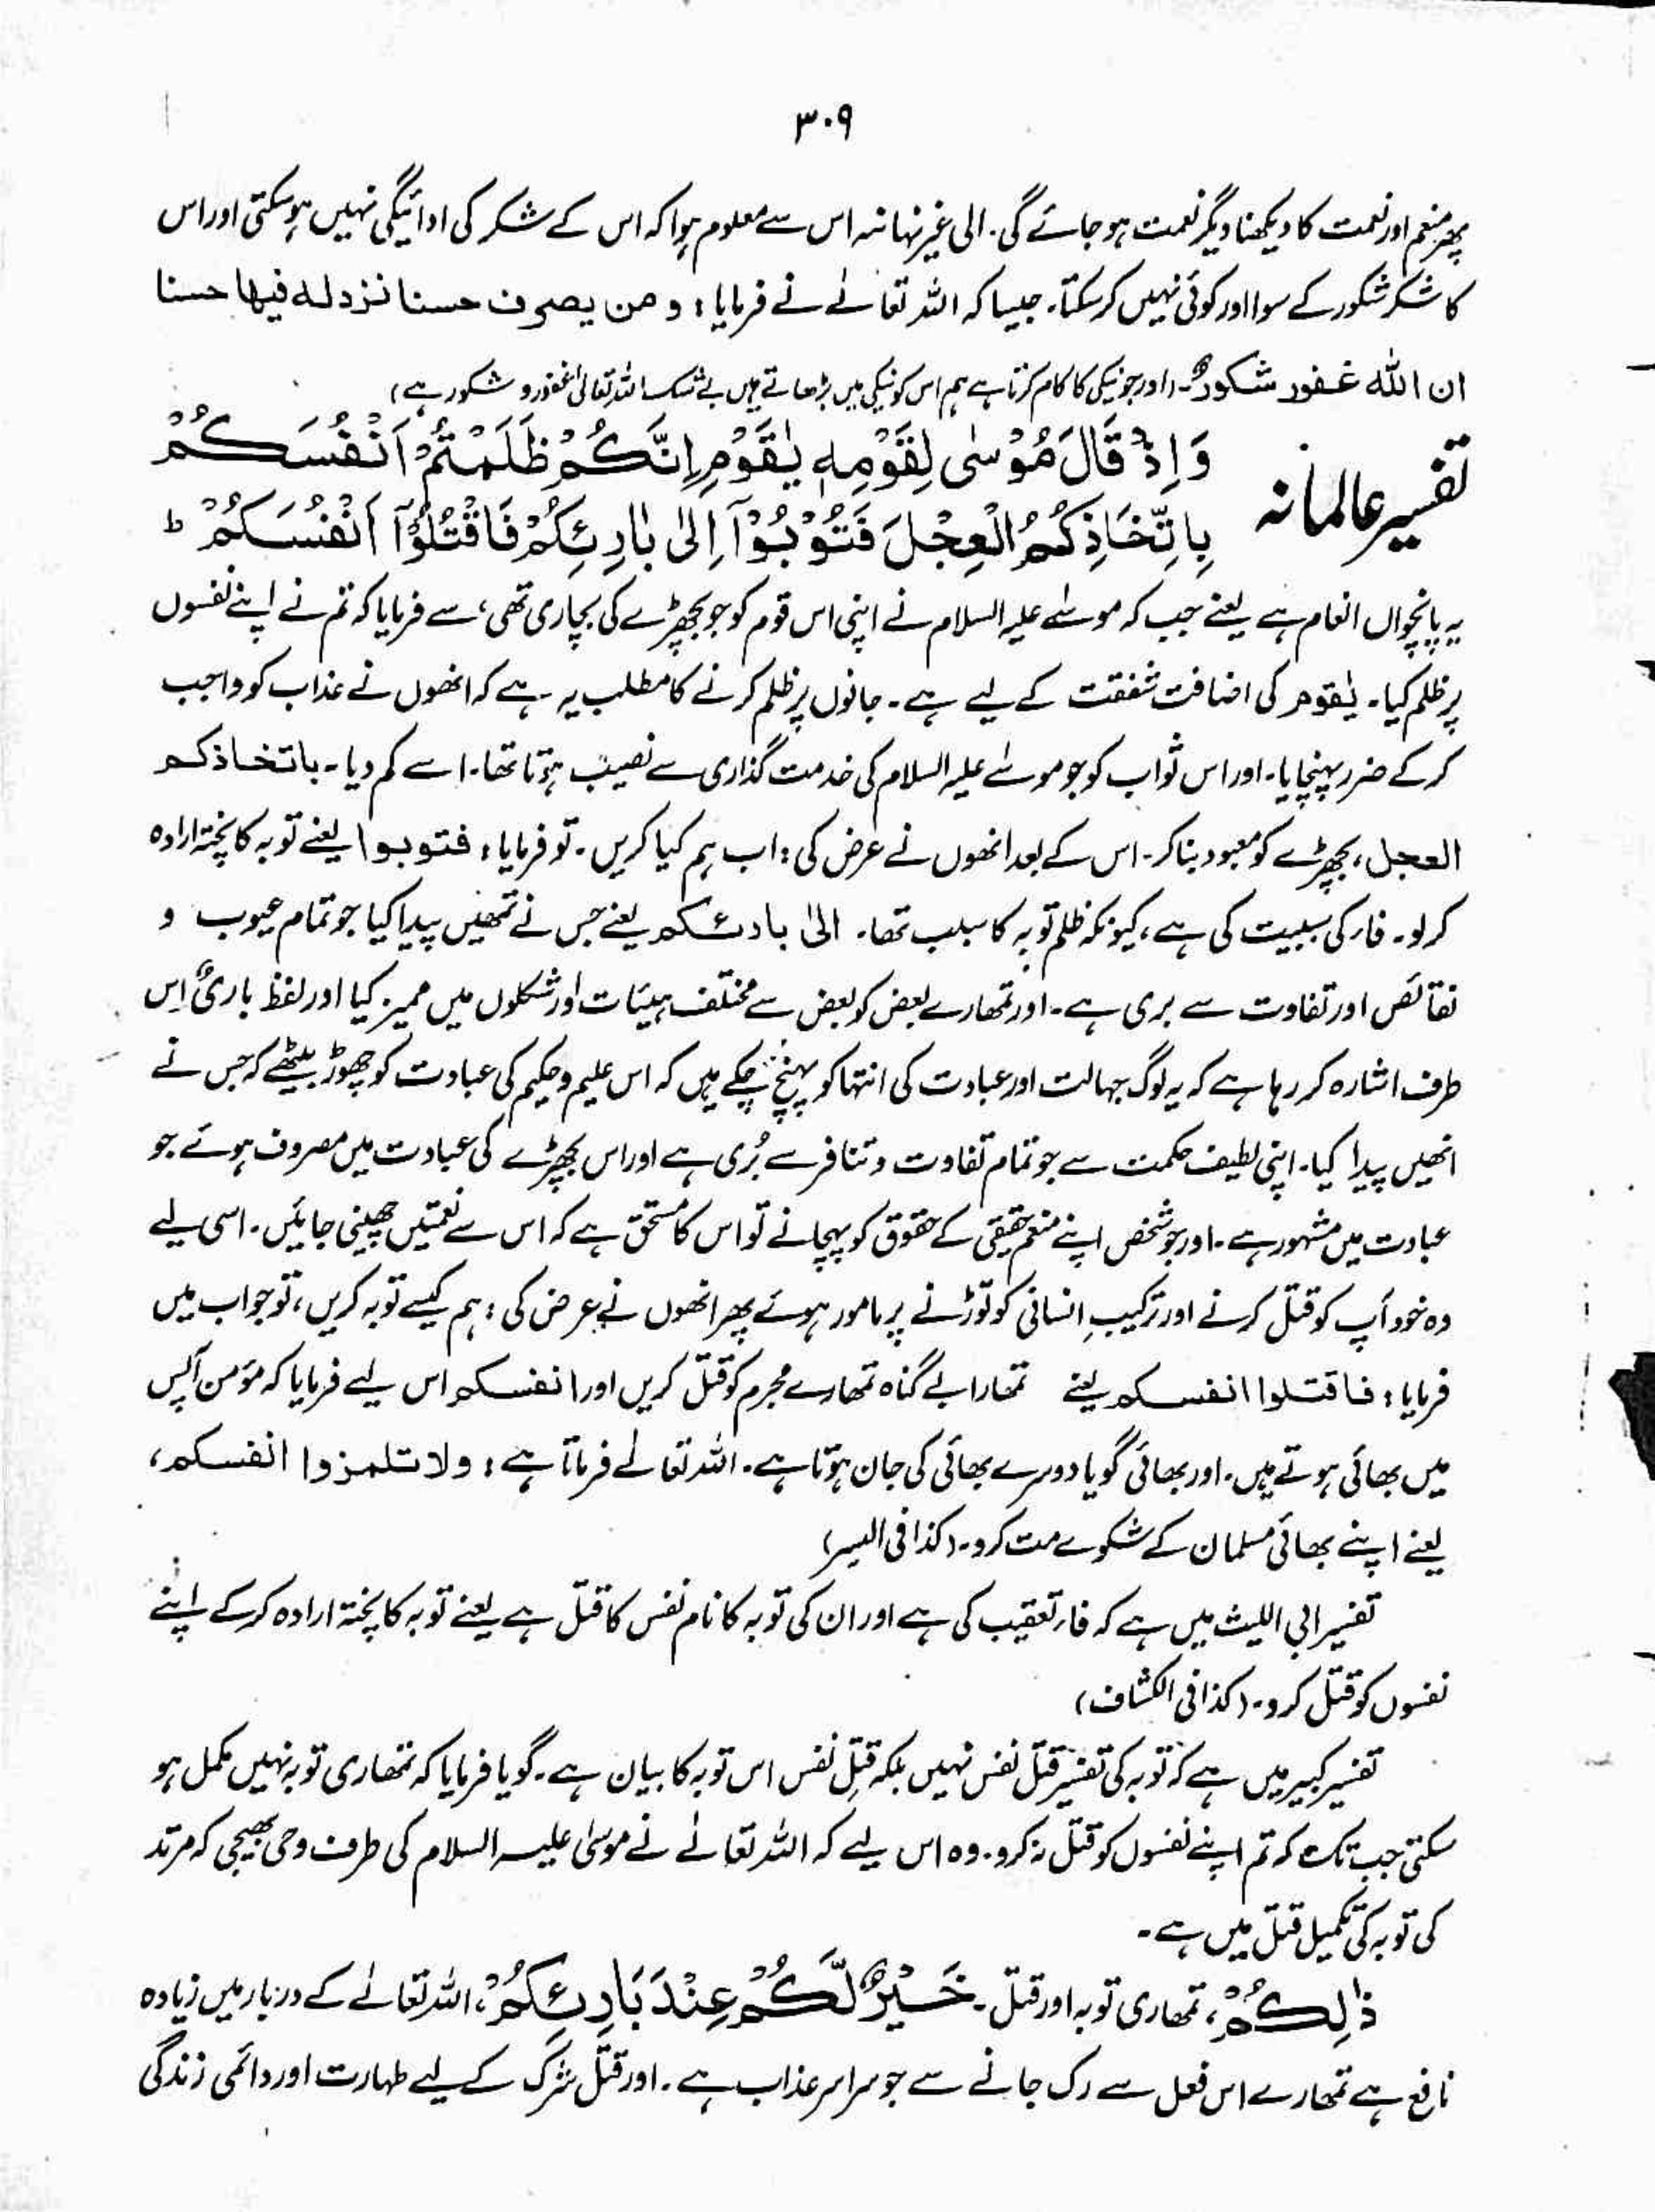 ۳۰۹
پھر منعم اور نعمت کا دیکھنا دیگر نعمت ہو جائے گی۔ الی غیر نہانہ اس سے معلوم ہوا کہ اس کے شکر کی ادائیگی نہیں ہو سکتی اور اس
کا شکر شکور کے سوا اور کوئی نہیں کر سکتا۔ جیسا کہ اللہ تعالےٰ نے فرمایا: و من یصرف حسنا نزد لہ فیھا حسنا
ان اللّٰہ غفور شکورٌ۔ (اور جو نیکی کا کام کرتا ہے ہم اس کو نیکی میں بڑھاتے ہیں بے شک اللہ تعالیٰ غفور و شکور ہے)
تفسیر عالمانہ وَ اِذْ قَالَ مُوْسٰی لِقَوْمِهٖ یٰقَوْمِ اِنَّكُمْ ظَلَمْتُمْ اَنْفُسَكُمْ
بِاتِّخَاذِكُمُ الْعِجْلَ فَتُوْبُوْۤا اِلٰی بَارِئِكُمْ فَاقْتُلُوْۤا اَنْفُسَكُمْ ؕ
یہ پانچواں انعام ہے یعنے جب کہ موسٰے علیہ السلام نے اپنی اس قوم کو جو بچھڑے کی پجاری تھی، سے فرمایا کہ تم نے اپنے نفسوں
پر ظلم کیا۔ یٰقوم کی اضافت شفقت کے لیے ہے۔ جانوں پر ظلم کرنے کا مطلب یہ ہے کہ انھوں نے عذاب کو واجب
کر کے ضرر پہنچایا۔ اور اس ثواب کو جو موسٰے علیہ السلام کی خدمت گذاری سے نصیب ہوتا تھا۔ اسے کم دیا۔ باتخاذکم
العجل، بچھڑے کو معبود بنا کر۔ اس کے بعد انھوں نے عرض کی: اب ہم کیا کریں۔ تو فرمایا: فتوبوا یعنے توبہ کا پختہ ارادہ
کر لو۔ فار کی سببیت کی ہے، کیونکہ ظلم توبہ کا سبب تھا۔ الیٰ بادئکم یعنے جس نے تمھیں پیدا کیا جو تمام عیوب و
نقائص اور تفاوت سے بری ہے۔ اور تمھارے بعض کو بعض سے مختلف ہیئات اور شکلوں میں ممیز کیا اور لفظ باریٔ اِس
طرف اشارہ کر رہا ہے کہ یہ لوگ جہالت اور عبادت کی انتہا کو پہنچ چکے ہیں کہ اس علیم و حکیم کی عبادت کو چھوڑ بیٹھے کہ جس نے
انھیں پیدا کیا۔ اپنی لطیف حکمت سے جو تمام تفاوت و تنافر سے بُری ہے اور اس بچھڑے کی عبادت میں مصروف ہوئے جو
عبادت میں مشہور ہے۔ اور جو شخص اپنے منعم حقیقی کے حقوق کو پہچانے تو اس کا مستحق ہے کہ اس سے نعمتیں چھینی جائیں۔ اسی لیے
وہ خود آپ کو قتل کرنے اور ترکیبِ انسانی کو توڑنے پر مامور ہوئے پھر انھوں نے عرض کی: ہم کیسے توبہ کریں، تو جواب میں
فرمایا: فاقتلوا انفسکم یعنے تمھارا بے گناہ تمھارے مجرم کو قتل کریں اور انفسکم اس لیے فرمایا کہ مؤمن آپس
میں بھائی ہوتے ہیں۔ اور بھائی گویا دوسرے بھائی کی جان ہوتا ہے۔ اللہ تعالےٰ فرماتا ہے: ولا تلمزوا انفسکم،
یعنے اپنے بھائی مسلمان کے شکوے مت کرو۔ (کذا فی الیسر)
تفسیر ابی اللیث میں ہے کہ فار تعقیب کی ہے اور ان کی توبہ کا نام نفس کا قتل ہے یعنے توبہ کا پختہ ارادہ کر کے اپنے
نفسوں کو قتل کرو۔ (کذا فی الکشاف)
تفسیر کبیر میں ہے کہ توبہ کی تفسیر قتلِ نفس نہیں بلکہ قتلِ نفس اس توبہ کا بیان ہے۔ گویا فرمایا کہ تمھاری توبہ نہیں مکمل ہو
سکتی جب تک کہ تم اپنے نفسوں کو قتل نہ کرو۔ وہ اس لیے کہ اللہ تعالےٰ نے موسیٰ علیہ السلام کی طرف وحی بھیجی کہ مرتد
کی توبہ کی تکمیل قتل میں ہے۔
ذٰلِكُمْ، تمھاری توبہ اور قتل۔ خَیْرٌ لَّكُمْ عِنْدَ بَارِئِكُمْ، اللہ تعالےٰ کے دربار میں زیادہ
نافع ہے تمھارے اس فعل سے رک جانے سے جو سراسر عذاب ہے۔ اور قتل شرک کے لیے طہارت اور دائمی زندگی